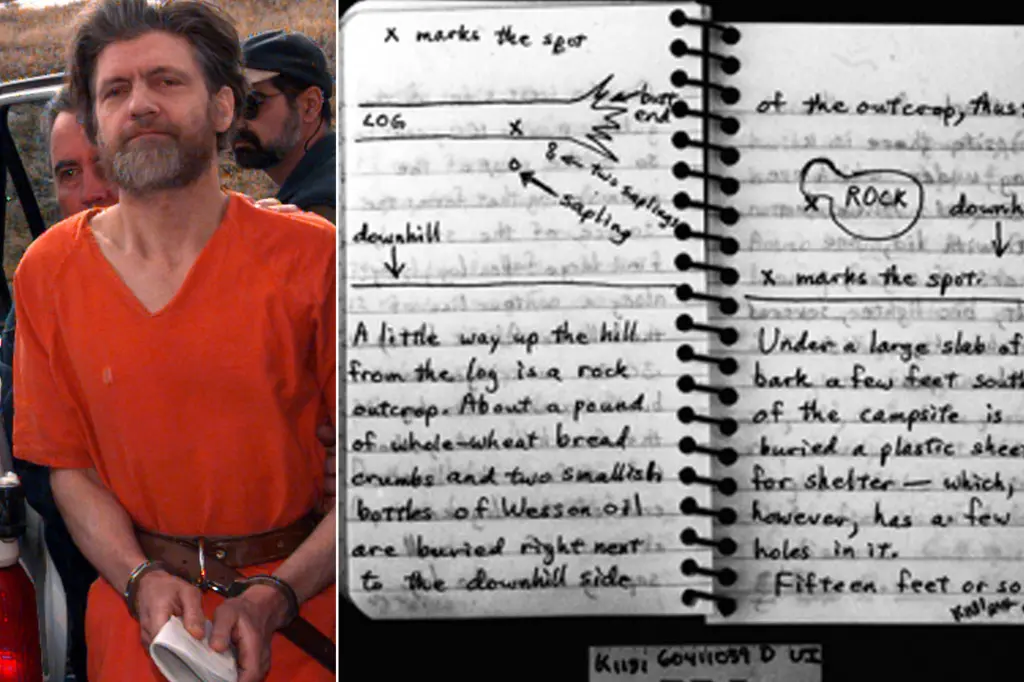 x marks the spot
butt
end
LOG
x
o 8 two saplings
sapling
downhill
A little way up the hill
from the log is a rock
outcrop. About a pound
of whole-wheat bread
crumbs and two smallish
bottles of Wesson oil
are buried right next
to the downhill side
of the outcrop, thus
ROCK
x
x marks the spot.
Under a large slab of
bark a few feet south
of the campsite is
buried a plastic shee
for shelter — which,
however, has a few
holes in it.
Fifteen feet or so